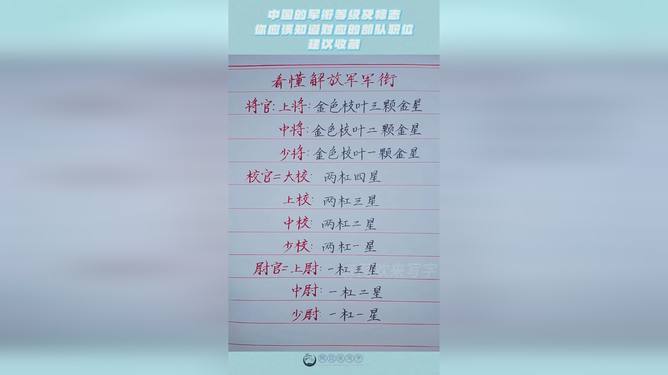 中国的军衔等级及标志
你应该知道对应的部队职位
建议收藏
看懂解放军军衔
将官:上将:金色校叶三颗金星
中将:金色校叶二颗金星
少将:金色校叶一颗金星
校官=大校:两杠四星
上校:两杠三星
中校:两杠二星
少校:两杠一星
尉官=上尉:一杠三星
中尉:一杠二星
少尉:一杠一星